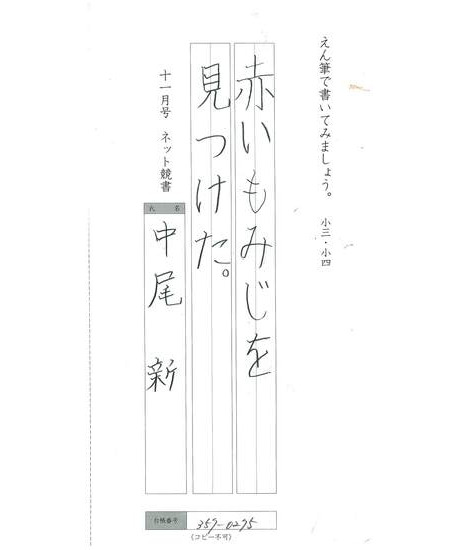 えん筆で書いてみましょう。 小三・小四
赤いもみじを
見つけた。
十一月号 ネット競書
氏 名
中尾 新
台帳番号 359-0295
(コピー不可)